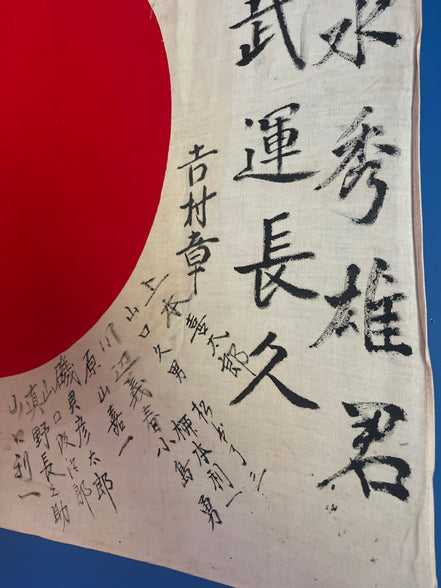 水秀雄君
武運長久
吉村章
上本喜太郎
山口久男
川辺義春
原山嘉一
磯貝彦太郎
山口政治郎
真野長之助
山口利一
柳本利一
小島勇